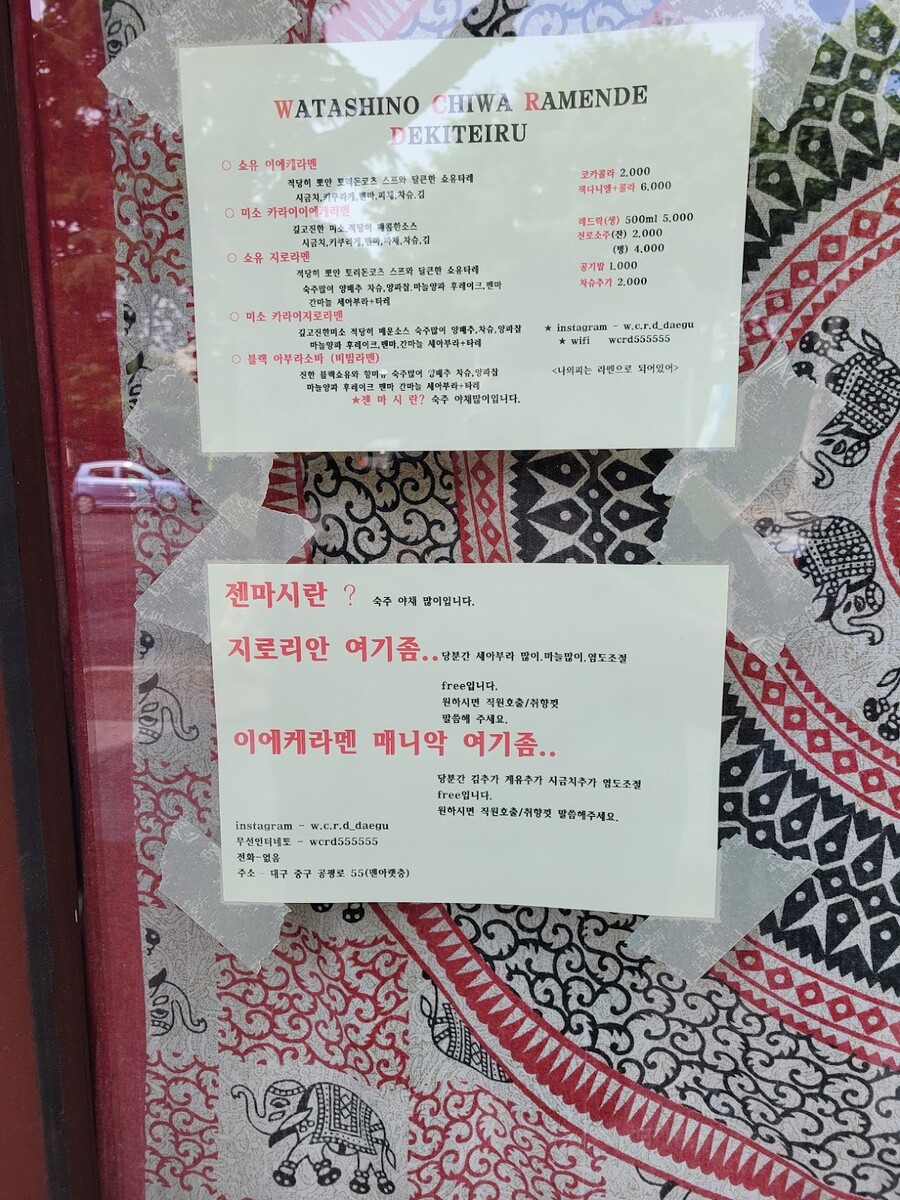 WATASHINO CHIWA RAMENDE
DEKITEIRU
○ 쇼유 이에케라멘
적당히 뽀얀 토리돈코츠 스프와 달큰한 쇼유타레
시금치,키쿠라게,멘마,파채,차슈,김
○ 미소 카라이이에케라멘
깊고진한 미소,적당히 매콤한소스
시금치,키쿠라게,멘마,파채,차슈,김
○ 쇼유 지로라멘
적당히 뽀얀 토리돈코츠 스프와 달큰한 쇼유타레
숙주많이 양배추 차슈,양파찹,마늘양파 후레이크,멘마
간마늘 세아부라+타레
○ 미소 카라이지로라멘
깊고진한미소 적당히 매운소스 숙주많이 양배추,차슈,양파찹
마늘양파 후레이크,멘마,간마늘 세아부라+타레
○ 블랙 아부라소바 (비빔라멘)
진한 블랙쇼유와 향미유 숙주많이 양배추 차슈,양파찹
마늘양파 후레이크 멘마 간마늘 세아부라+타레
★젠 마 시 란? 숙주 야채많이입니다.
코카콜라 2,000
잭다니엘+콜라 6,000
레드락(생) 500ml 5,000
진로소주(잔) 2,000
(병) 4,000
공기밥 1,000
차슈추가 2,000
★ instagram - w.c.r.d_daegu
★ wifi wcrd555555
<나의피는 라멘으로 되어있어>
젠마시란 ? 숙주 야채 많이입니다.
지로리안 여기좀..당분간 세아부라 많이.마늘많이.염도조절
free입니다.
원하시면 직원호출/취향껏
말씀해 주세요.
이에케라멘 매니악 여기좀..
당분간 김추가 계유추가 시금치추가 염도조절
free입니다.
원하시면 직원호출/취향껏 말씀해주세요.
instagram - w.c.r.d_daegu
무선인터네토 - wcrd555555
전화-없음
주소 - 대구 중구 공평로 55(맨아랫층)